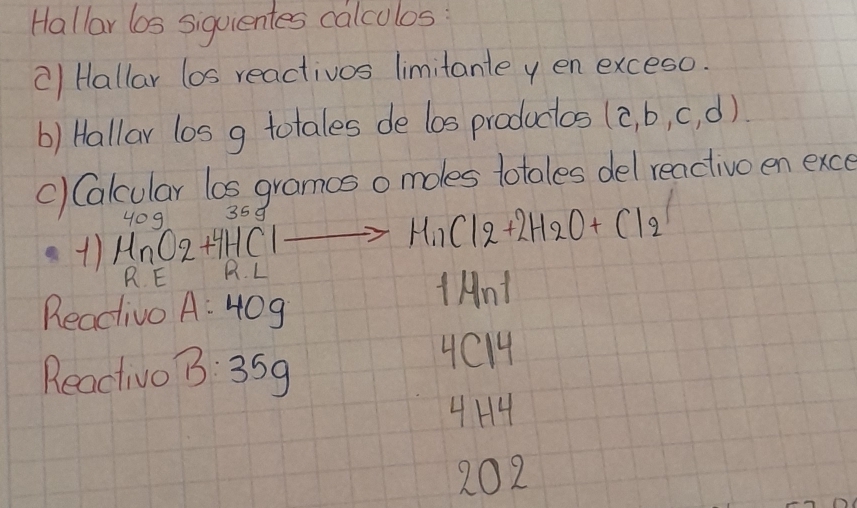 Hallar los siguientes cálculos:
a) Hallar los reactivos limitante y en exceso.
b) Hallar los g totales de los productos (a, b, c, d).
c) Calcular los gramos o moles totales del reactivo en exce
40g 35g
1) MnO2+4HCl → MnCl2+2H2O+Cl2
R.E R.L
1 Mn 1
Reactivo A: 40g
4 Cl 4
Reactivo B: 35g
4 H 4
2 O 2